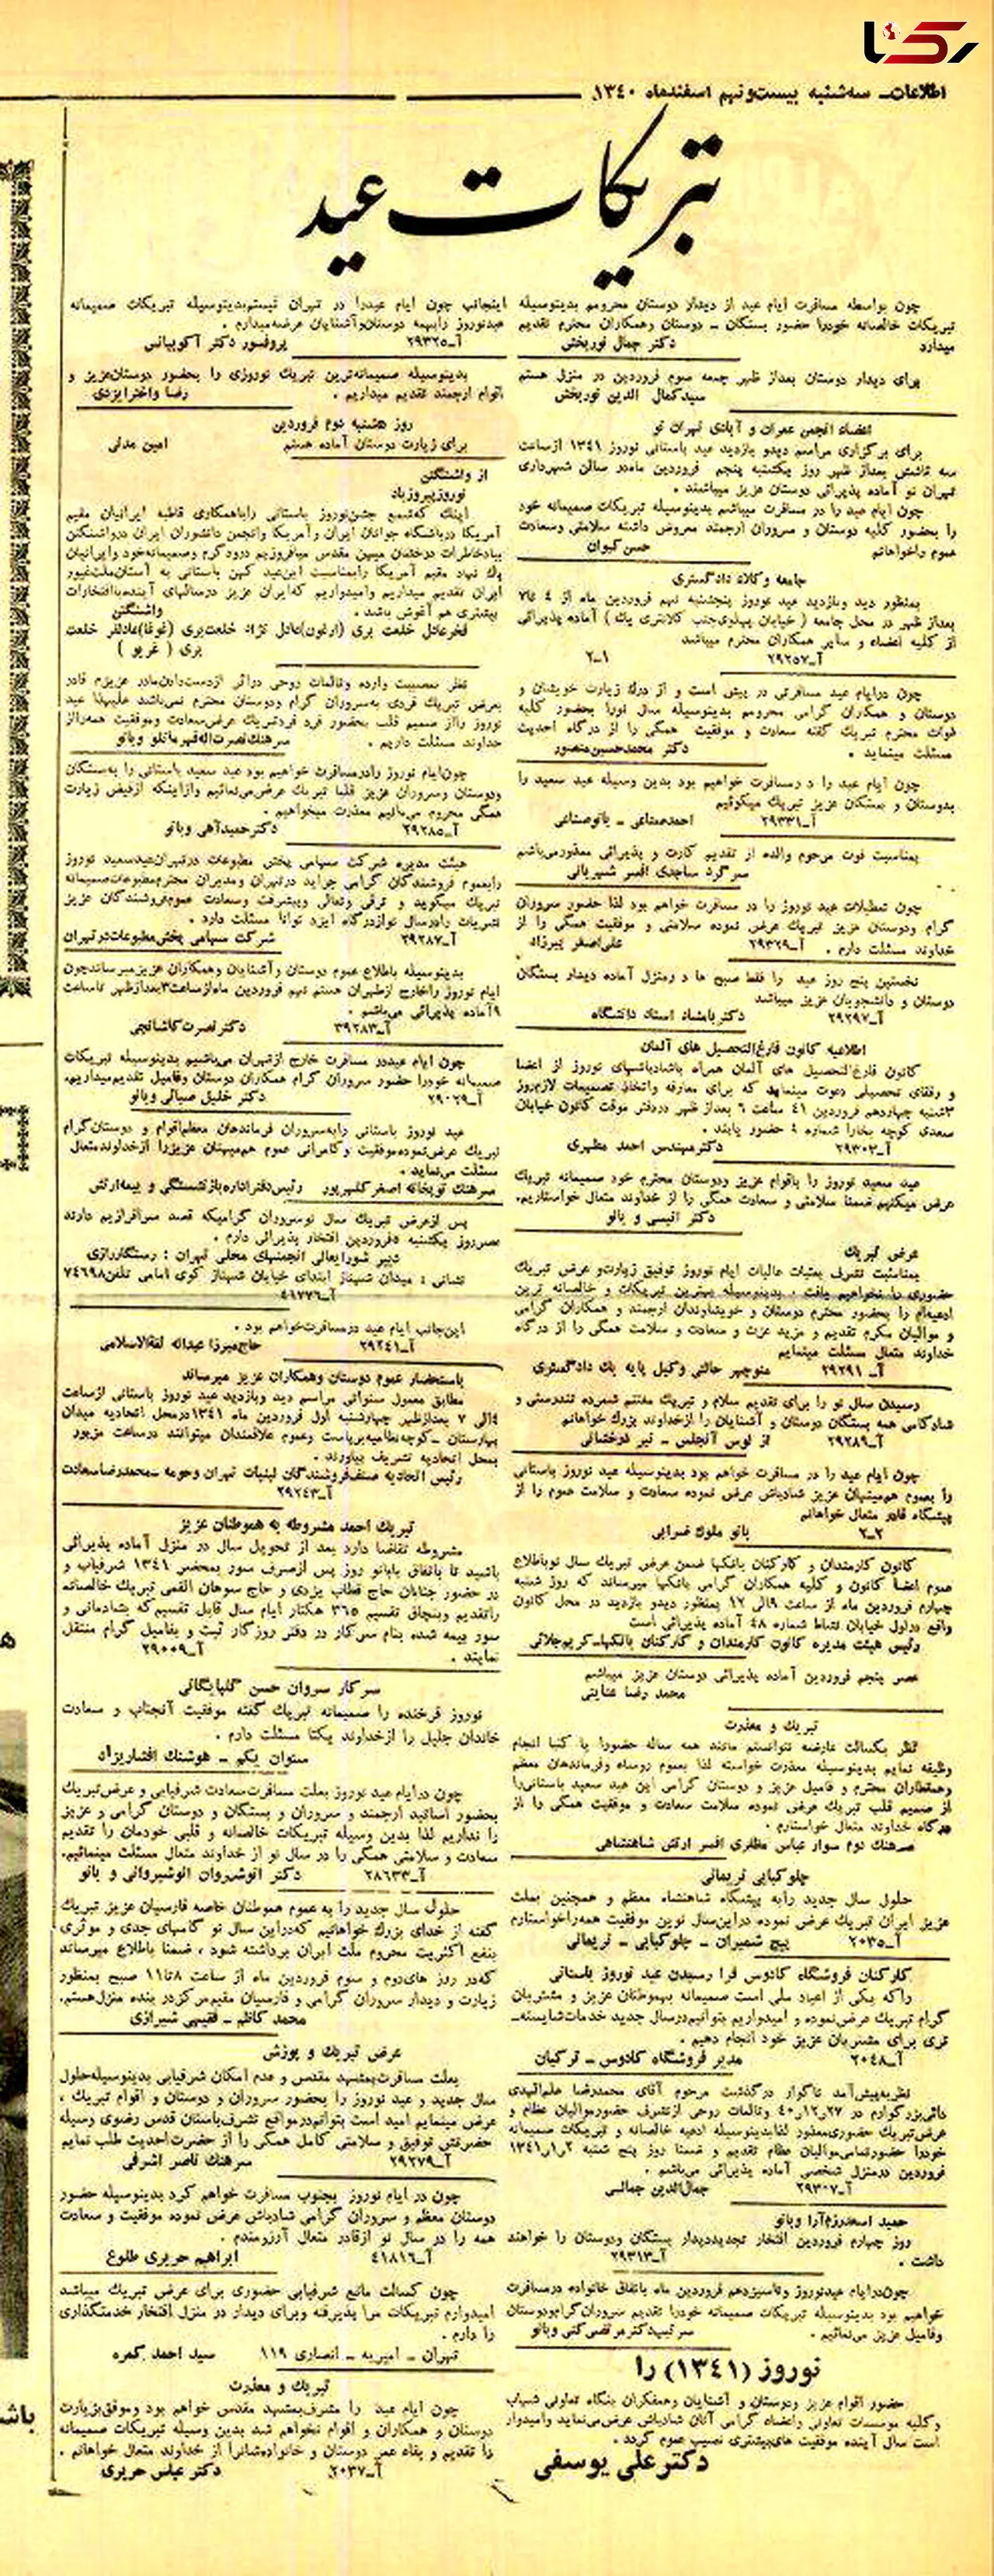 رکنا
اطلاعات ـ سه‌شنبه بیست‌ونهم اسفندماه ۱۳۴۰
تبریکات عید
چون بواسطه مسافرت ایام عید از دیدار دوستان محرومم بدینوسیله
تبریکات خالصانه خودرا حضور بستگان ـ دوستان وهمکاران محترم تقدیم
میدارد
دکتر جمال نوربخش
برای دیدار دوستان بعداز ظهر جمعه سوم فروردین در منزل هستم
سیدکمال الدین نوربخش
اعضاء انجمن عمران و آبادی تهران نو
برای برگزاری مراسم دیدو بازدید عید باستانی نوروز ۱۳۴۱ ازساعت
سه تاشش بعداز ظهر روز یکشنبه پنجم فروردین ماه‌در سالن شهرداری
تهران نو آماده پذیرائی دوستان عزیز میباشند .
چون ایام عید را در مسافرت میباشم بدینوسیله تبریکات صمیمانه خود
را بحضور کلیه دوستان و سروران ارجمند معروض داشته سلامتی وسعادت
عموم راخواهانم
حسن کیوان
جامعه وکلاء دادگستری
بمنظور دید وبازدید عید نوروز پنجشنبه نهم فروردین ماه از ۴ تا۷
بعداز ظهر در محل جامعه ( خیابان پهلوی‌جنب کلانتری یک ) آماده پذیرائی
از کلیه اعضاء و سایر همکاران محترم میباشد
آـ۲۹۲۵۷ ۱ـ۲
چون درایام عید مسافرتی در پیش است و از درک زیارت خویشان و
دوستان و همکاران گرامی محرومم بدینوسیله سال نورا بحضور کلیه
ذوات محترم تبریک گفته سعادت و موفقیت همگی را از درگاه احدیت
مسئلت مینماید .
دکتر محمدحسین‌منصور
چون ایام عید را د رمسافرت خواهیم بود بدین وسیله عید سعید را
بدوستان و بستگان عزیز تبریک میگوئیم
آـ۲۹۳۳۱ احمدصناعی ـ بانوصناعی
بمناسبت فوت مرحوم والده از تقدیم کارت و پذیرائی معذورمی‌باشم
سرگرد ساجدی افسر شهربانی
چون تعطیلات عید نوروز را در مسافرت خواهم بود لذا حضور سروران
گرام ودوستان عزیز تبریک عرض نموده سلامتی و موفقیت همگی را از
خداوند مسئلت دارم . آـ۲۹۳۲۹ علی‌اصغر پیرزاد
نخستین پنج روز عید را فقط صبح ها د رمنزل آماده دیدار بستگان
دوستان و دانشجویان عزیز میباشد
آـ۲۹۲۹۷ دکتربامشاد استاد دانشگاه
اطلاعیه کانون فارغ‌التحصیل های آلمان
کانون فارغ‌التحصیل های آلمان همراه باشادباشهای نوروز از اعضا
و رفقای تحصیلی دعوت مینماید که برای معارفه واتخاذ تصمیمات لازم‌روز
۳شنبه چهاردهم فروردین ۴۱ ساعت ۶ بعداز ظهر دردفتر موقت کانون خیابان
سعدی کوچه بخارا شماره ۸ حضور یابند .
آـ۲۹۳۰۳ دکترمهندس احمد مطهری
عید سعید نوروز را باقوام عزیز ودوستان محترم خود صمیمانه تبریک
عرض میکنیم ضمنا سلامتی و سعادت همگی را از خداوند متعال خواستاریم.
دکتر انیسی و بانو
عرض تبریک
بمناسبت تشرف بعتبات عالیات ایام نوروز توفیق زیارت‌و عرض تبریک
حضوری را نخواهیم یافت . بدینوسیله بهترین تبریکات و خالصانه ترین
ادعیه‌ام را بحضور محترم دوستان و خویشاوندان ارجمند و همکاران گرامی
و موالیان مکرم تقدیم و مزید عزت و سعادت و سلامت همگی را از درگاه
خداوند متعال مسئلت مینمایم
آـ ۲۹۲۹۱ منوچهر حالتی وکیل پایه یک دادگستری
رسیدن سال نو را برای تقدیم سلام و تبریک مغتنم شمرده تندرستی و
شادکامی همه بستگان دوستان و آشنایان را ازخداوند بزرگ خواهانم
آـ۲۹۲۸۹ از لوس آنجلس ـ نیر درخشانی
چون ایام عید را در مسافرت خواهم بود بدینوسیله عید نوروز باستانی
را بعموم هم‌میهنان عزیز شادباش عرض نموده سعادت و سلامت عموم را از
پیشگاه قادر متعال خواهانم
۲ـ۲ بانو ملوک ضرابی
کانون کارمندان و کارکنان بانکها ضمن عرض تبریک سال نوباطلاع
عموم اعضا کانون و کلیه همکاران گرامی بانکها میرساند که روز شنبه
چهارم فروردین ماه از ساعت ۹الی ۱۲ بمنظور دیدو بازدید در محل کانون
واقع دراول خیابان نشاط شماره ۴۸ آماده پذیرائی است
رئیس هیئت مدیره کانون کارمندان و کارکنان بانکهاـ‌کریم‌جلائی
عصر پنجم فروردین آماده پذیرائی دوستان عزیز میباشم
محمد رضا عنایتی
تبریک و معذرت
نظر بکسالت عارضه نتوانستم مانند همه ساله حضورا یا کتبا انجام
وظیفه نمایم بدینوسیله معذرت خواسته لذا بعموم روساء وفرماندهان معظم
وهمقطاران محترم و فامیل عزیز و دوستان گرامی این عید سعید باستانی‌را
از صمیم قلب تبریک عرض نموده سلامت سعادت و موفقیت همگی را از
درگاه خداوند متعال خواستارم .
سرهنک دوم سوار عباس مظفری افسر ارتش شاهنشاهی
چلوکبابی نریمانی
حلول سال جدید رابه پیشگاه شاهنشاه معظم و همچنین بملت
عزیز ایران تبریک عرض نموده دراین‌سال نوین موفقیت همه‌راخواستارم
آـ۲۰۳۵ پیچ شمیران ـ چلوکبابی ـ نریمانی
کارکنان فروشگاه کادوس فرا رسیدن عید نوروز باستانی
راکه یکی از اعیاد ملی است صمیمانه بهموطنان عزیز و مشتریان
گرام تبریک عرض‌نموده و امیدواریم بتوانیم‌درسال جدید خدمات‌شایسته‌ـ
تری برای مشتریان عزیز خود انجام دهیم .
آـ۲۰۴۸ مدیر فروشگاه کادوس ـ ترکیان
نظربه‌پیش‌آمد ناگوار درگذشت مرحوم آقای محمدرضا علم‌الهدی
دائی‌بزرگوارم در ۲۷ر۱۲ر۴۰ وتالمات روحی ازتشرف حضورموالیان عظام و
عرض‌تبریک حضوری‌معذور لذابدینوسیله ادعیه خالصانه و تبریکات صمیمانه
خودرا حضورتمامی‌موالیان عظام تقدیم و ضمنا روز پنج شنبه ۲ر۱ر۱۳۴۱
فروردین درمنزل شخصی آماده پذیرائی می‌باشم .
آـ۲۹۳۰۷ جمال‌الدین جمالی
حمید اسعدرزم‌آرا وبانو
روز چهارم فروردین افتخار تجدیددیدار بستگان ودوستان را خواهند
داشت . آـ۲۹۳۱۳
چون‌درایام عیدنوروز وتاسیزدهم فروردین ماه باتفاق خانواده درمسافرت
خواهیم بود بدینوسیله تبریکات صمیمانه خودرا تقدیم سروران‌گرام‌ودوستان
وفامیل عزیز می‌نمائیم . سرتیپ‌دکتر مرتضی‌کنی وبانو
نوروز (۱۳۴۱) را
حضور اقوام عزیز ودوستان و آشنایان وهمفکران بنگاه تعاونی شهاب
وکلیه موسسات تعاونی واعضاء گرامی آنان شادباش عرض‌می‌نماید وامیدوار
است سال آینده موفقیت های‌بیشتری نصیب عموم گردد .
دکترعلی یوسفی
اینجانب چون ایام عیدرا در تهران نیستم‌بدینوسیله تبریکات صمیمانه
عیدنوروز رابهمه دوستان‌وآشنایان عرضه‌میدارم .
آـ۲۹۳۲۵ پروفسور دکتر آکوپیانس
بدینوسیله صمیمانه‌ترین تبریک نوروزی را بحضور دوستان‌عزیز و
اقوام ارجمند تقدیم میداریم . رضا واخترایزدی
روز هشنبه دوم فروردین
برای زیارت دوستان آماده هستم امین مدلی
از واشنگتن
نوروزپیروزباد
اینک که‌شمع جشن‌نوروز باستانی راباهمکاری قاطبه ایرانیان مقیم
آمریکا درباشگاه جوانان ایران وآمریکا وانجمن دانشوران ایران درواشنگتن
بیادخاطرات درخشان میهن مقدس میافروزیم درود گرم وصمیمانه‌خود وایرانیان
پاک نهاد مقیم آمریکا رابمناسبت این‌عید کهن باستانی به آستان‌ملت‌غیور
ایران تقدیم میداریم وامیدواریم که‌ایران عزیز درسالهای آینده‌باافتخارات
بیشتری هم آغوش باشد . واشنگتن
فخرعادل خلعت بری (ارغون)عادل نژاد خلعت‌بری (غوغا)عادلفر خلعت
بری ( غریو )
نظر بمصیبت وارده وتالمات روحی دراثر ازدست‌دادن‌مادر عزیزم قادر
بعرض تبریک فردی به‌سروران گرام ودوستان محترم نمی‌باشد علیهذا عید
نوروز رااز صمیم قلب بحضور فرد فردتبریک عرض‌سعادت وموفقیت همه‌رااز
خداوند مسئلت داریم . سرهنک‌نصرت‌اله‌قهرمانلو وبانو
چون‌ایام نوروز رادرمسافرت خواهیم بود عید سعید باستانی را به‌بستگان
ودوستان وسروران عزیز قلبا تبریک عرض‌می‌نمائیم وازاینکه ازفیض زیارت
همگی محروم می‌مانیم معذرت میخواهیم .
آـ۲۹۲۸۵ دکترحمیدآهی وبانو
هیئت مدیره شرکت سهامی پخش مطبوعات درتهران‌عیدسعید نوروز
رابعموم فروشندگان گرامی جراید درتهران ومدیران محترم‌مطبوعات‌صمیمانه
تبریک میگوید و ترقی وتعالی وپیشرفت وسعادت عموم‌فروشندگان عزیز
نشریات رادرسال نوازدرگاه ایزد توانا مسئلت دارد .
آـ۲۹۲۸۷ شرکت سهامی پخش‌مطبوعات‌درتهران
بدینوسیله باطلاع عموم دوستان وآشنایان وهمکاران عزیزمیرساندچون
ایام نوروز راخارج ازطهران هستم نهم فروردین ماه‌ازساعت۳بعدازظهر تاساعت
۹آماده پذیرائی می‌باشم .
آـ۳۹۲۸۳ دکترنصرت‌کاشانچی
چون ایام عیددر مسافرت خارج ازتهران می‌باشیم بدینوسیله تبریکات
صمیمانه خودرا حضور سروران گرام همکاران دوستان وفامیل تقدیم‌میداریم.
آـ۲۹۰۲۹ دکتر خلیل ضیائی وبانو
عید نوروز باستانی رابه‌سروران فرماندهان معظم‌اقوام و دوستان‌گرام
تبریک عرض‌نموده‌موفقیت وکامرانی عموم هم‌میهنان عزیزرا ازخداوندمتعال
مسئلت می‌نماید .
سرهنک توپخانه اصغر گلسپور رئیس‌دفتراداره‌بازنشستگی و بیمه‌ارتش
پس ازعرض تبریک سال نوسروران گرامیکه قصد سرافرازیم دارند
عصرروز یکشنبه ۵فروردین افتخار پذیرائی دارم .
دبیر شورایعالی انجمنهای محلی تهران : رستگاررازی
نشانی : میدان شهناز ابتدای خیابان شهناز کوی امامی تلفن۷۴۶۹۸
آـ۴۱۷۷۶
این‌جانب ایام عید درمسافرت‌خواهم بود .
آـ۲۹۲۴۱ حاج‌میرزا عبداله ثقةالاسلامی
باستحضار عموم دوستان وهمکاران عزیز میرساند
مطابق معمول سنواتی مراسم دید وبازدید عید نوروز باستانی ازساعت
۴الی ۷ بعدازظهر چهارشنبه اول فروردین ماه ۱۳۴۱درمحل اتحادیه میدان
بهارستان ـ‌کوچه‌نظامیه‌برپاست وعموم علاقمندان میتوانند درساعت مزبور
بمحل اتحادیه تشریف بیاورند .
رئیس اتحادیه صنف‌فروشندگان لبنیات تهران وحومه ـ‌محمدرضاسعادت
آـ۲۹۲۴۳
تبریک احمد مشروطه به هموطنان عزیز
مشروطه تقاضا دارد بعد از تحویل سال در منزل آماده پذیرائی
باشید تا باتفاق بابانو روز پس ازصرف سور بمحضر ۱۳۴۱ شرفیاب و
در حضور جنابان حاج قطاب یزدی و حاج سوهان القمی تبریک خالصانه
راتقدیم وبنچاق تقسیم ۳۶۵ هکتار ایام سال قابل تقسیم‌که بشادمانی و
سور بیمه شده بنام سرکار در دفتر روزگار ثبت و بفامیل گرام منتقل
نمایند . آـ۲۹۰۰۹
سرکار سروان حسن گلپایگانی
نوروز فرخنده را صمیمانه تبریک گفته موفقیت آنجناب و سعادت
خاندان جلیل را ازخداوند یکتا مسئلت دارم .
ستوان یکم ـ هوشنک افشاریزاد
چون درایام عید نوروز بعلت مسافرت‌سعادت شرفیابی و عرض‌تبریک
بحضور اساتید ارجمند و سروران و بستگان و دوستان گرامی و عزیز
را نداریم لذا بدین وسیله تبریکات خالصانه و قلبی خودمان را تقدیم
سعادت و سلامتی همگی را در سال نو از خداوند متعال مسئلت مینمائیم.
آـ۲۸۶۳۳ دکتر انوشیروان انوشیروانی و بانو
حلول سال جدید را به عموم هموطنان خاصه فارسیان عزیز تبریک
گفته از خدای بزرک خواهانیم که‌دراین سال نو گامهای جدی و موثری
بنفع اکثریت محروم ملت ایران برداشته شود ، ضمنا باطلاع میرساند
که‌در روز های‌دوم و سوم فروردین ماه از ساعت ۸تا۱۱ صبح بمنظور
زیارت و دیدار سروران گرامی و فارسیان مقیم‌مرکزدر بنده منزل‌هستم.
محمد کاظم ـ فقیهی شیرازی
عرض تبریک و پوزش
بعلت مسافرت‌بمشهد مقدس و عدم امکان شرفیابی بدینوسیله‌حلول
سال جدید و عید نوروز را بحضور سروران و دوستان و اقوام تبریک ،
عرض مینمایم امید است بتوانم‌درمواقع تشرف‌بآستان قدس رضوی وسیله
حضرتش توفیق و سلامتی کامل همگی را از حضرت‌احدیت طلب نمایم
آـ۲۹۲۷۹ سرهنک ناصر اشرفی
چون در ایام نوروز بجنوب مسافرت خواهم کرد بدینوسیله حضور
دوستان معظم و سروران گرامی شادباش عرض نموده موفقیت و سعادت
همه را در سال نو ازقادر متعال آرزومندم .
آـ۴۱۸۱۶ ابراهیم حریری طلوع
چون کسالت مانع شرفیابی حضوری برای عرض تبریک میباشد
امیدوارم تبریکات مرا پذیرفته وبرای دیدار در منزل افتخار خدمتگذاری
را دارم .
تهران ـ امیریه ـ انصاری ۱۱۹ سید احمد کمره
تبریک و معذرت
چون ایام عید را مشرف‌بمشهد مقدس خواهم بود وموفق‌بزیارت
دوستان و همکاران و اقوام نخواهم شد بدین وسیله تبریکات صمیمانه
را تقدیم و بقاء عمر دوستان و خانواده‌شانرا از خداوند متعال خواهانم .
آـ۲۰۳۷ دکتر عباس حریری